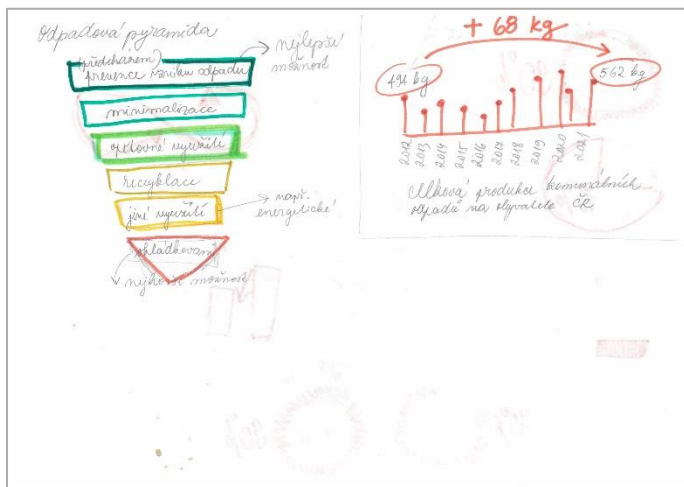 Odpadová pyramida
(předcházení)
prevence vzniku odpadu
nejlepší
možnost
minimalizace
opětovné využití
recyklace
jiné využití
např.
energetické
skládkování
nejhorší možnost
+ 68 kg
494 kg
562 kg
2012
2013
2014
2015
2016
2017
2018
2019
2020
2021
Celková produkce komunálních
odpadů na obyvatele ČR